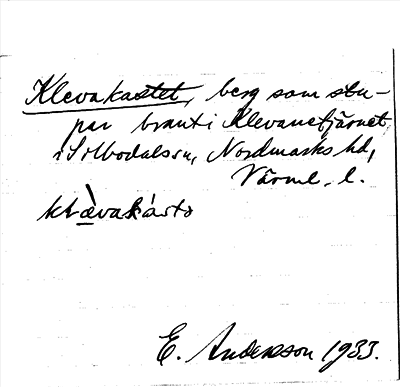 Klevakastet, berg som stu-
par brant i Klevanetjärnet,
i Silbodals sn, Nordmarks hd,
Värml. l.
klàvakásto
E. Anderson 1933.